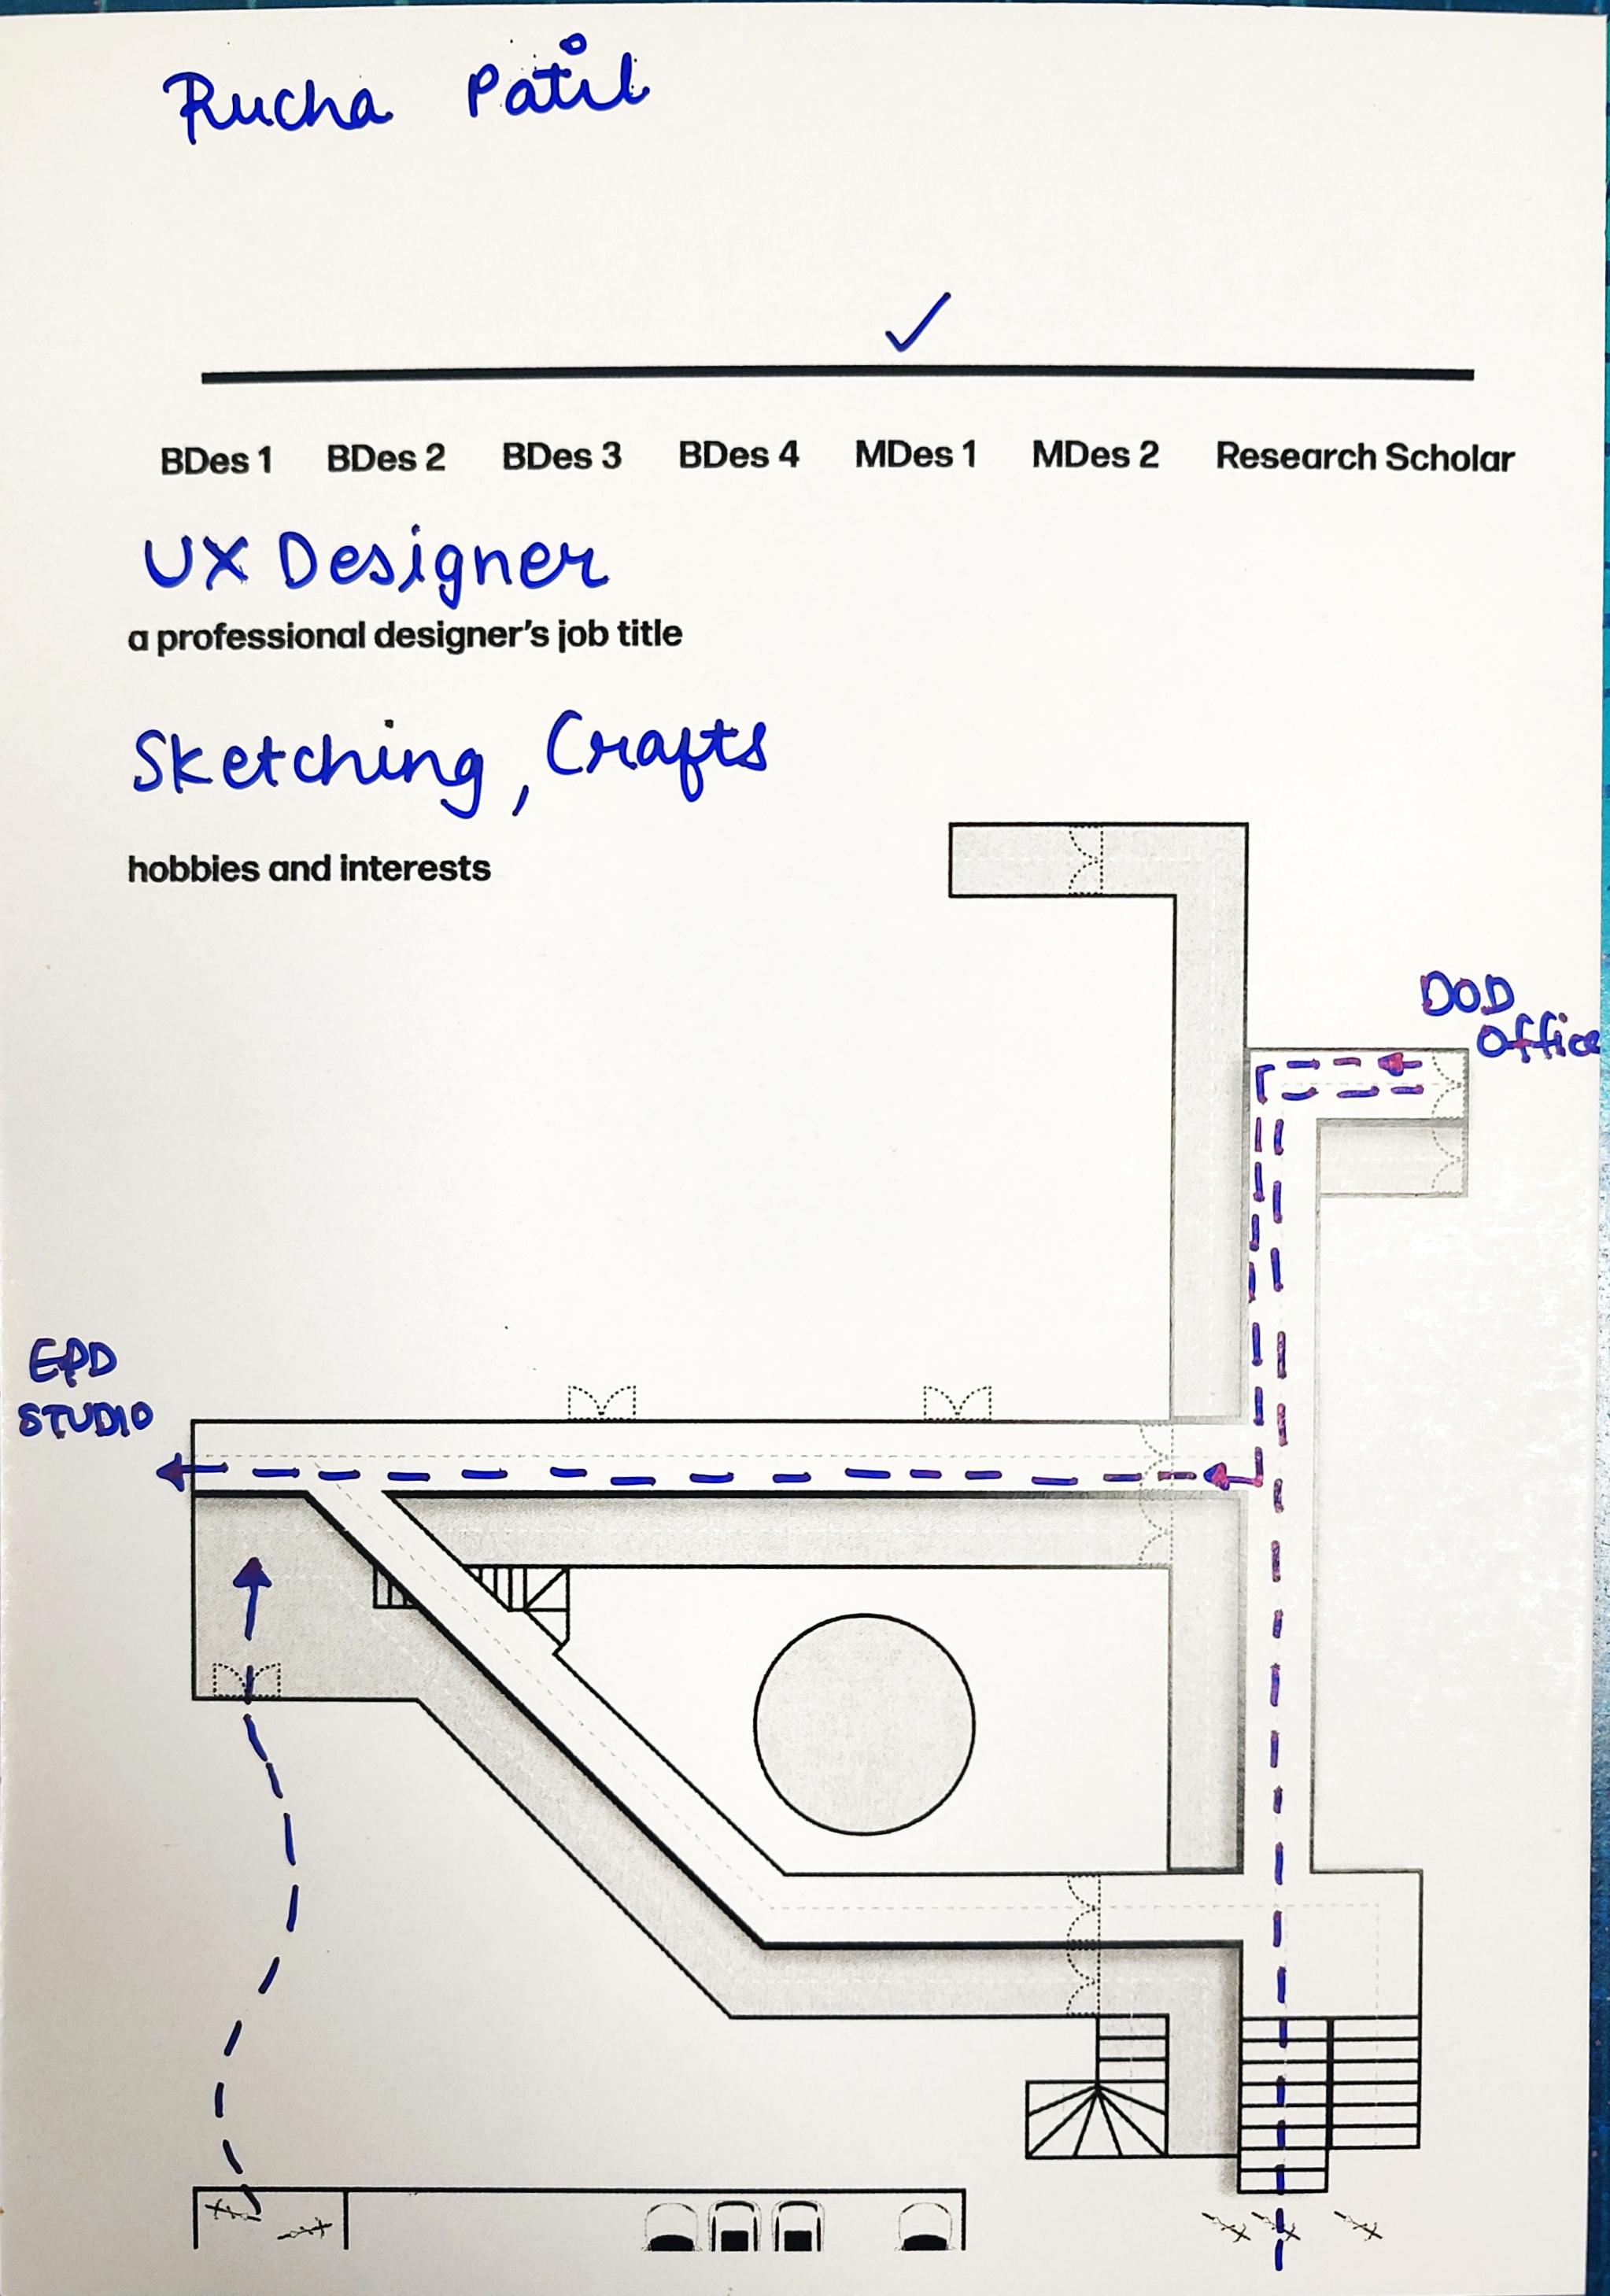 Rucha Patil
✓
BDes 1 BDes 2 BDes 3 BDes 4 MDes 1 MDes 2 Research Scholar
UX Designer
a professional designer's job title
Sketching, Crafts
hobbies and interests
DOD
Office
EPD
STUDIO